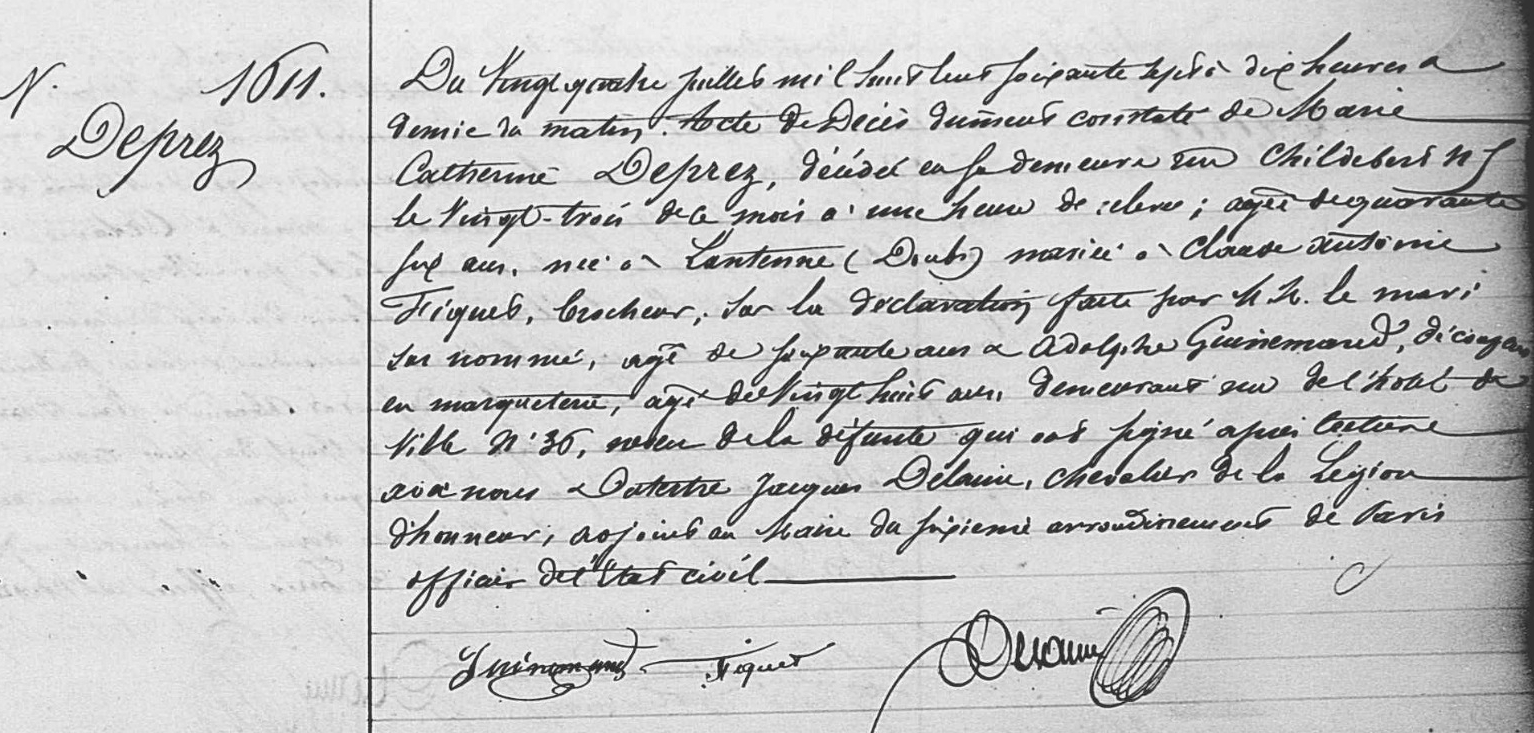 N. 1611.
Deprez
Du Vingt quatre juillet mil huit cent soixante sept à dix heures &
demie du matin. Acte de Décès dûment constaté de Marie
Catherine Deprez, décédée en sa demeure rue Childebert n 5
le Vingt-trois de ce mois à une heure de relevée; agée de quarante
six ans, née à Lantenne (Doubs) mariée à Claude Antoine
Fiquet, brocheur; sur la déclaration faite par M.M. le mari
sus nommé, agé de soixante ans & Adolphe Guinemand, découpeur
en marqueterie, agé de Vingt huit ans, demeurant rue de l'hotel de
Ville N° 36, neveu de la défunte qui ont signé après lecture
avec nous Jacques Delaunie, chevalier de la Légion
d'honneur, adjoint au Maire du sixième arrondissement de Paris
officier de l'État civil
Guinemand Fiquet